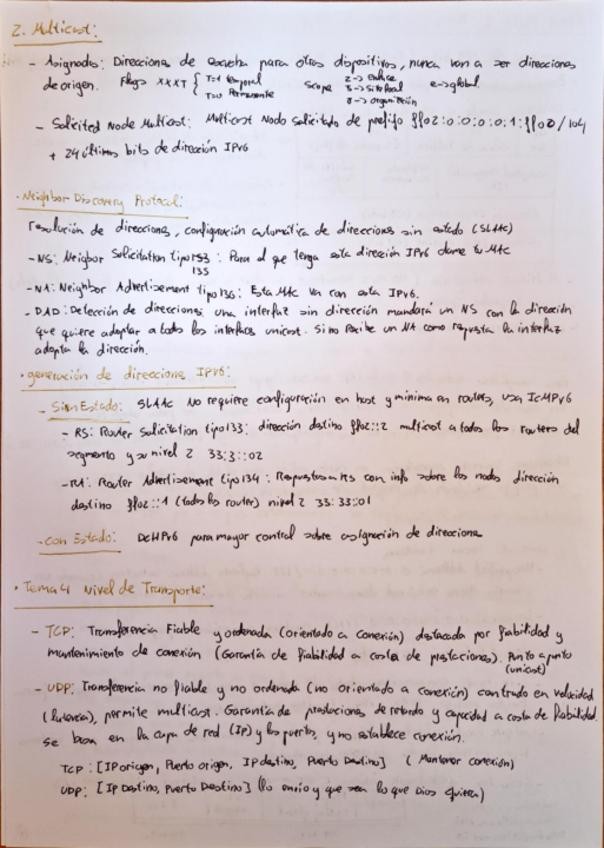 2. Multicast:
- Asignados: Direcciones de escucha para otros dispositivos, nunca van a ser direcciones
de origen. Flags XXXT { T=1 temporal T=0 Permanente Scope 2 -> enlace 5 -> sitelocal 8 -> organización e -> global
- Solicited Node Multicast: Multicast Nodo solicitado de prefijo ff02:0:0:0:0:1:ff00/104
+ 24 últimos bits de dirección IPv6
· Neighbor Discovery Protocol:
resolución de direcciones, configuración automática de direcciones sin estado (SLAAC)
- NS: Neigbor Solicitation tipo 135: Para el que tenga esta dirección IPv6 dame tu MAC
- NA: Neighbor Advertizement tipo 136: Esta MAC va con esta IPv6.
- DAD: Detección de direcciones una interfaz sin dirección mandará un NS con la dirección
que quiere adoptar a todos los interfaces unicast. Si no recibe un NA como repuesta la interfaz
adopta la dirección.
· generación de direcciones IPv6:
- Sin Estado: SLAAC No requiere configuración en host y minima en routers, usa ICMPv6
- RS: Router Solicitation tipo 133: dirección destino ff02::2 multicast a todos los routers del
segmento y su nivel 2 33:3::02
- RA: Router Advertizement tipo 134: Respuesta a RS con info sobre los nodos dirección
destino ff02::1 (todos los router) nivel 2 33:33::01
- con Estado: DCHPv6 para mayor control sobre asignación de direcciones
· Tema 4 Nivel de Transporte:
- TCP: Transferencia Fiable y ordenada (orientado a conexión) destacada por fiabilidad y
mantenimiento de conexión (Garantía de fiabilidad a costa de prestaciones). Punto a punto
(unicast)
- UDP: Transferencia no fiable y no ordenada (no orientado a conexión) centrado en velocidad
(latencia), permite multicast. Garantía de prestaciones de retardo y capacidad a costa de fiabilidad.
se basa en la capa de red (IP) y los puertos, y no establece conexión.
TCP: [IP origen, Puerto origen, IP destino, Puerto Destino] (Mantener conexión)
UDP: [IP Destino, Puerto Destino] (lo envio y que sea lo que Dios quiera)